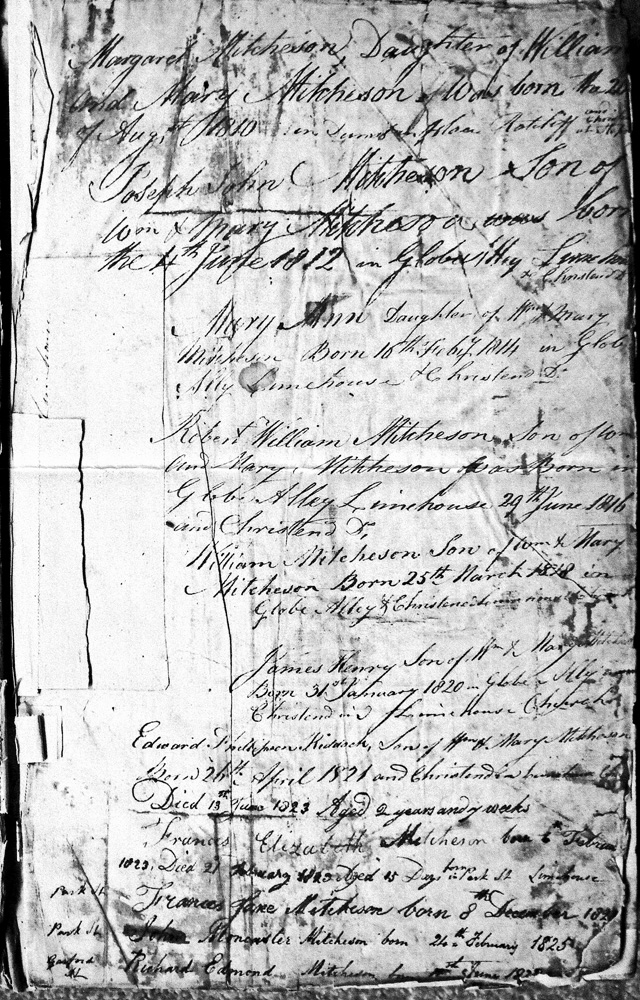 Margaret Mitcheson, Daughter of William
and Mary Mitcheson, Was born the 20
of Augst 1810 in Place Ratcliff
Joseph John Mitcheson Son of
Wm & Mary Mitcheson was born
the 4th June 1812 in Globe Alley Limehouse
& Christend Do
Mary Ann Daughter of Wm & Mary
Mitcheson Born 16th Feby 1814 in Globe
Ally Limehouse & Christend Do
Robert William Mitcheson Son of Wm
and Mary Mitcheson Was Born in
Globe Alley Limehouse 29th June 1816
and Christend Do
William Mitcheson Son of Wm & Mary
Mitcheson Born 25th March 1818 in
Globe Alley & Christend
James Henry Son of Wm & Mary Mitcheson
Born 31st January 1820 in Globe Ally
Christend in Limehouse Church
Edward Son of Wm & Mary Mitcheson
Born 26th April 1821 and Christend in
Died 13th June 1823 Aged 2 years and 7 weeks
Frances Elizabeth Mitcheson born 6th
1823, Died 21 February 1823 Aged 15 Days born in Park St Limehouse
Park St Frances Jane Mitcheson born 8th December
Park St John Moncaster Mitcheson born 24th February 1825
Garford St Richard Edmond Mitcheson June